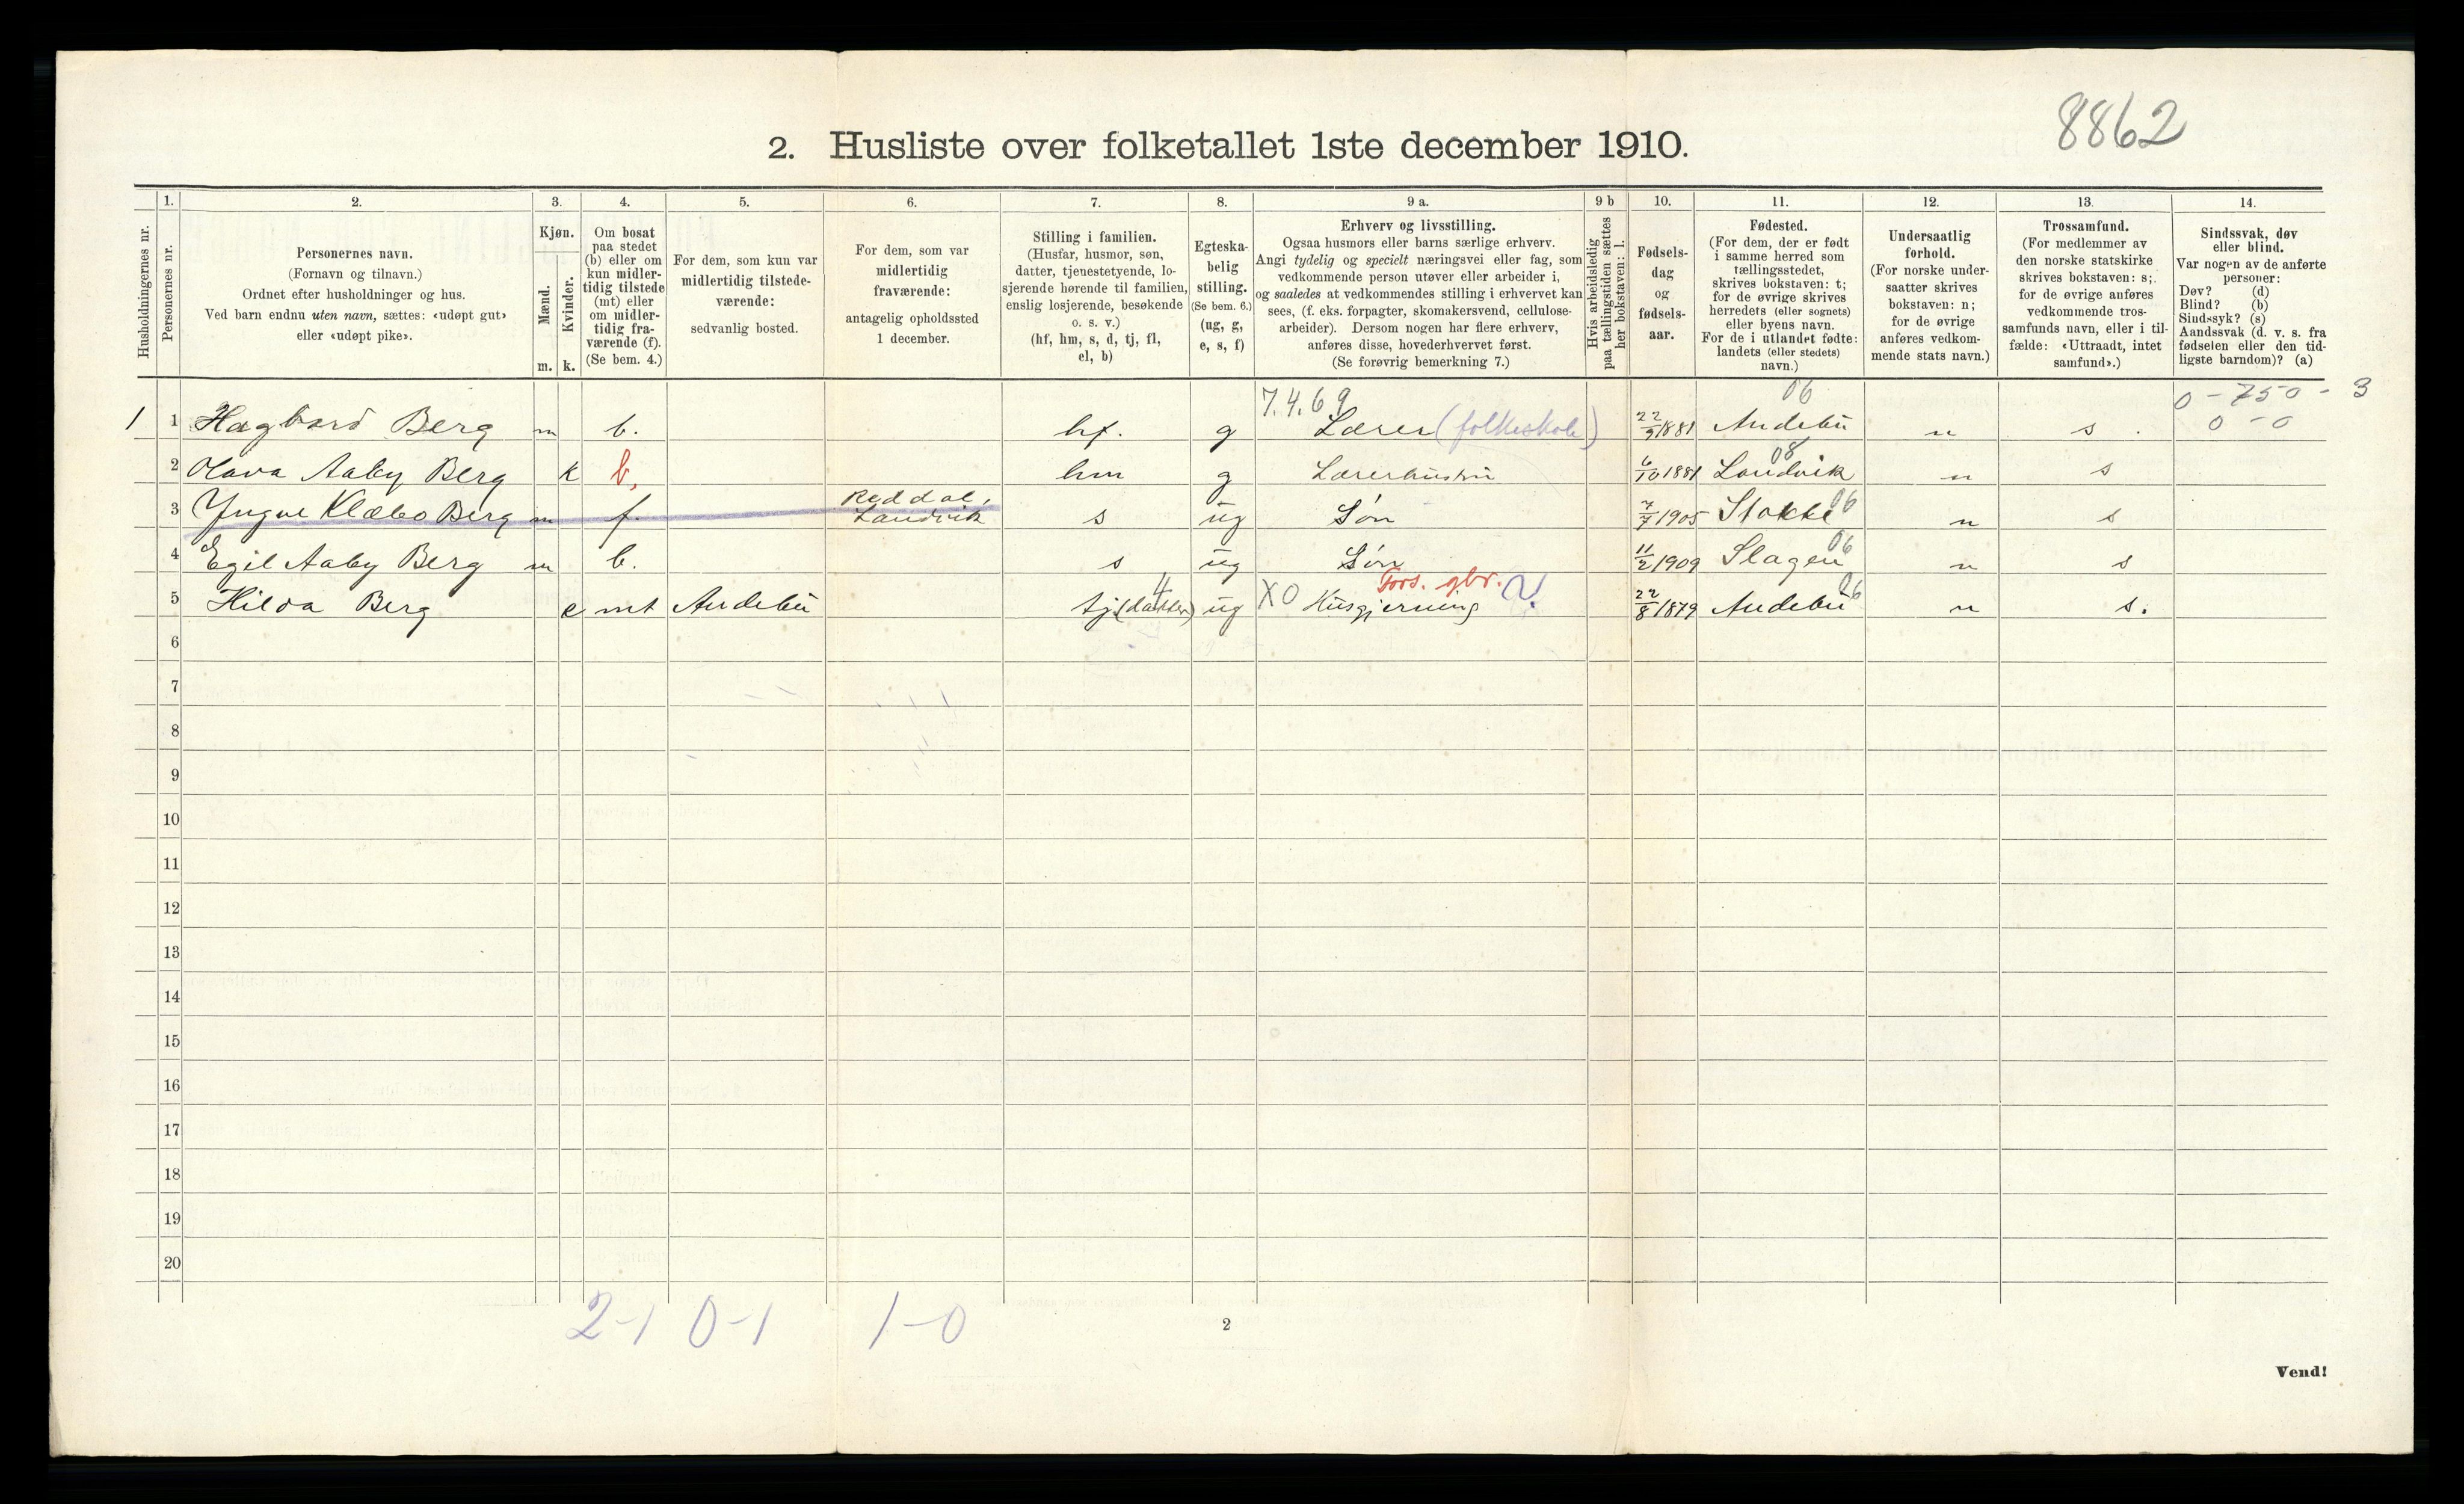 8862
2. Husliste over folketallet 1ste december 1910.
Husholdningernes nr.
1.
Personernes nr.
2.
Personernes navn.
(Fornavn og tilnavn.)
Ordnet efter husholdninger og hus.
Ved barn endnu uten navn, sættes: «udøpt gut»
eller «udøpt pike».
3.
Kjøn.
Mænd.
Kvinder.
m. k.
4.
Om bosat
paa stedet
(b) eller om
kun midler-
tidig tilstede
(mt) eller
om midler-
tidig fra-
værende (f).
(Se bem. 4.)
5.
For dem, som kun var
midlertidig tilstede-
værende:
sedvanlig bosted.
6.
For dem, som var
midlertidig
fraværende:
antagelig opholdssted
1 december.
7.
Stilling i familien.
(Husfar, husmor, søn,
datter, tjenestetyende, lo-
sjerende hørende til familien,
enslig losjerende, besøkende
o. s. v.)
(hf, hm, s, d, tj, fl,
el, b)
8.
Egteska-
belig
stilling.
(Se bem. 6.)
(ug, g,
e, s, f)
9 a.
Erhverv og livsstilling.
Ogsaa husmors eller barns særlige erhverv.
Angi tydelig og specielt næringsvei eller fag, som
vedkommende person utøver eller arbeider i,
og saaledes at vedkommendes stilling i erhvervet kan
sees, (f. eks. forpagter, skomakersvend, cellulose-
arbeider). Dersom nogen har flere erhverv,
anføres disse, hovederhvervet først.
(Se forøvrig bemerkning 7.)
9 b
Hvis arbeidsledig
paa tællingstiden sættes
her bokstaven: l.
10.
Fødsels-
dag
og
fødsels-
aar.
11.
Fødested.
(For dem, der er født
i samme herred som
tællingsstedet,
skrives bokstaven: t;
for de øvrige skrives
herredets (eller sognets)
eller byens navn.
For de i utlandet fødte:
landets (eller stedets)
navn.)
12.
Undersaatlig
forhold.
(For norske under-
saatter skrives
bokstaven: n;
for de øvrige
anføres vedkom-
mende stats navn.)
13.
Trossamfund.
(For medlemmer av
den norske statskirke
skrives bokstaven: s;
for de øvrige anføres
vedkommende tros-
samfunds navn, eller i til-
fælde: «Uttraadt, intet
samfund».)
14.
Sindssvak, døv
eller blind.
Var nogen av de anførte
personer:
Døv? (d)
Blind? (b)
Sindssyk? (s)
Aandssvak (d. v. s. fra
fødselen eller den tid-
ligste barndom)? (a)
7.4.69 06 0 - 750 - 3
1 1 Hagbard Berg m b. hf. g Lærer (folkeskole) 22/9 1881 Andebu n s . 0 - 0
08
2 Olava Aaby Berg k b, hm g Lærerhustru 6/10 1881 Landvik n s
Reddal,
3 Yngve Klæbo Berg m f. Landvik s ug Søn 7/7 1905 Stokke 06 n s
4 Egil Aaby Berg m b. s ug Søn 11/2 1909 Slagen 06 n s
4 Fors. gbr. 06
5 Hilda Berg k mt Andebu tj (datter) ug XO Husgjerning 22/8 1879 Andebu n s.
6
7
8
9
10
11
12
13
14
15
16
17
18
19
20
2-1 0-1 1-0
2
Vend!